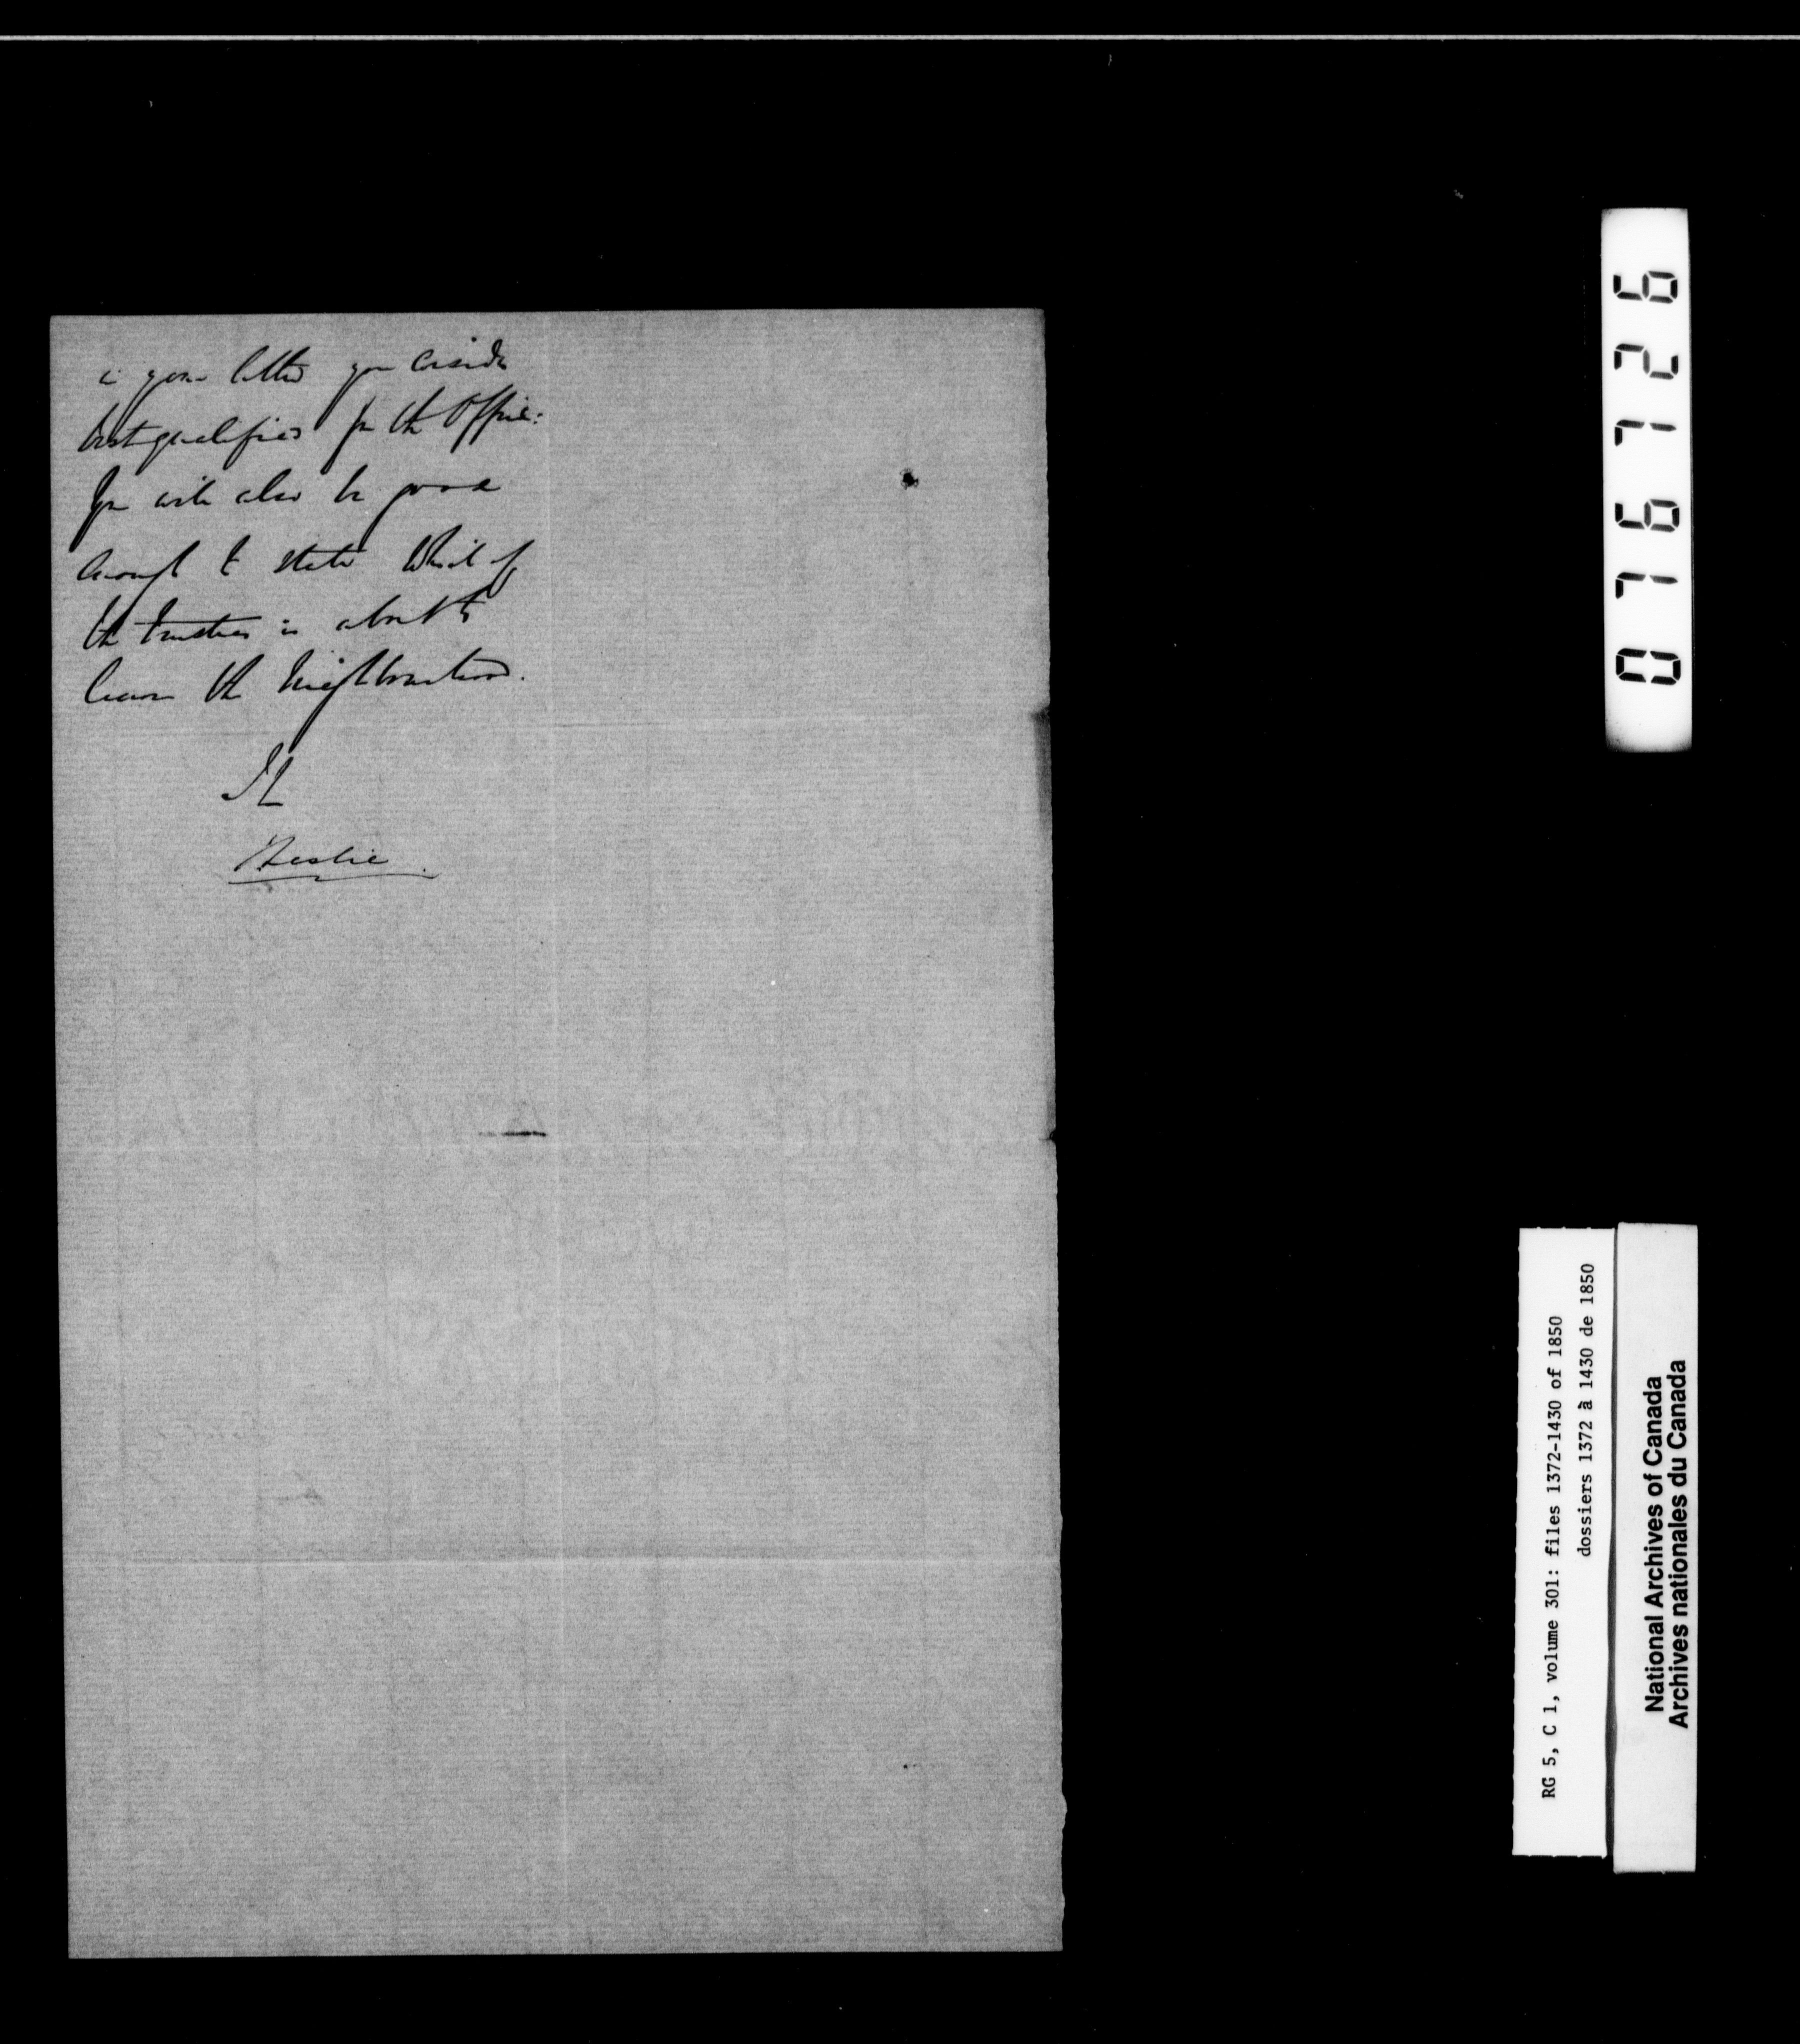 in your letter you consider
best qualified for the Office:
You will also be good
enough to state which of
the trustees is about to
leave the Neighbourhood.
JL
Leslie
076726
RG 5, C 1, volume 301: files 1372-1430 of 1850
dossiers 1372 à 1430 de 1850
National Archives of Canada
Archives nationales du Canada